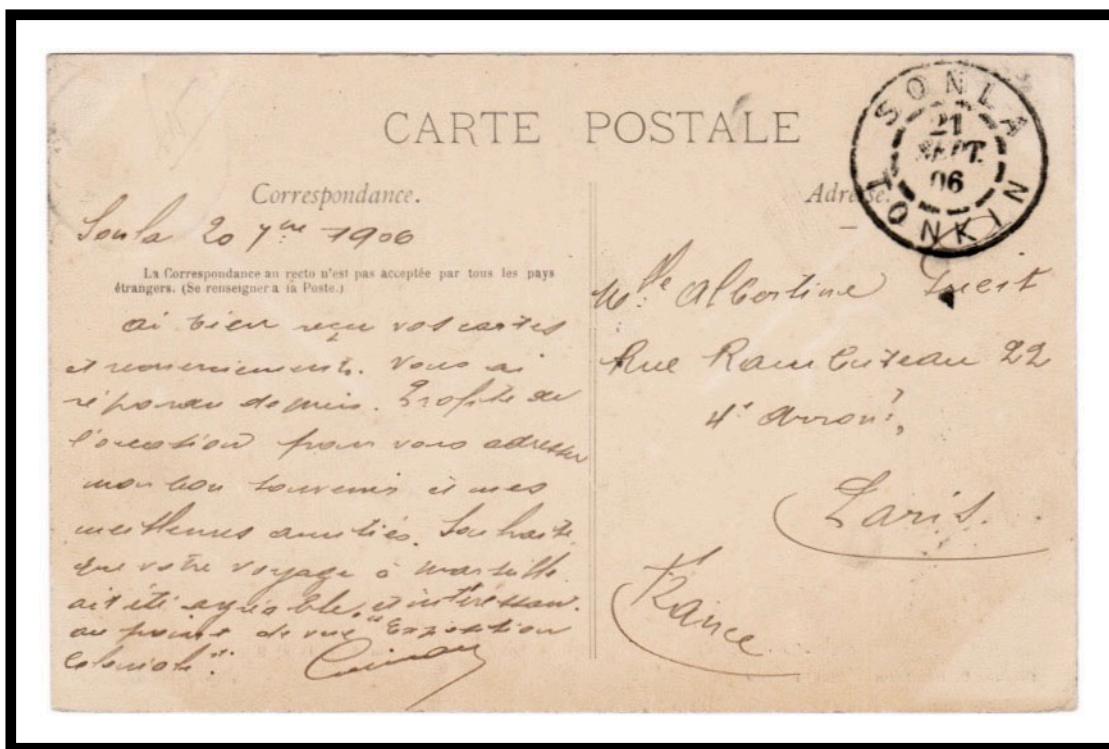 CARTE POSTALE
SONLA
21
SEPT.
06
TONKIN
Correspondance.
Adresse.
Sonla 20 7bre 1906
La Correspondance au recto n'est pas acceptée par tous les pays
étrangers. (Se renseigner à la Poste.)
ai bien reçu vos cartes
et remerciements. Vous ai
répondu depuis. Profite de
l'occasion pour vous adresser
mon bon souvenir et mes
meilleures amitiés. Souhaite
que votre voyage à Marseille
ait été agréable, et intéressant
au point de vue "Exposition
Coloniale".
Mlle Albertine
Rue Rambuteau 22
4e Arront,
Paris.
France